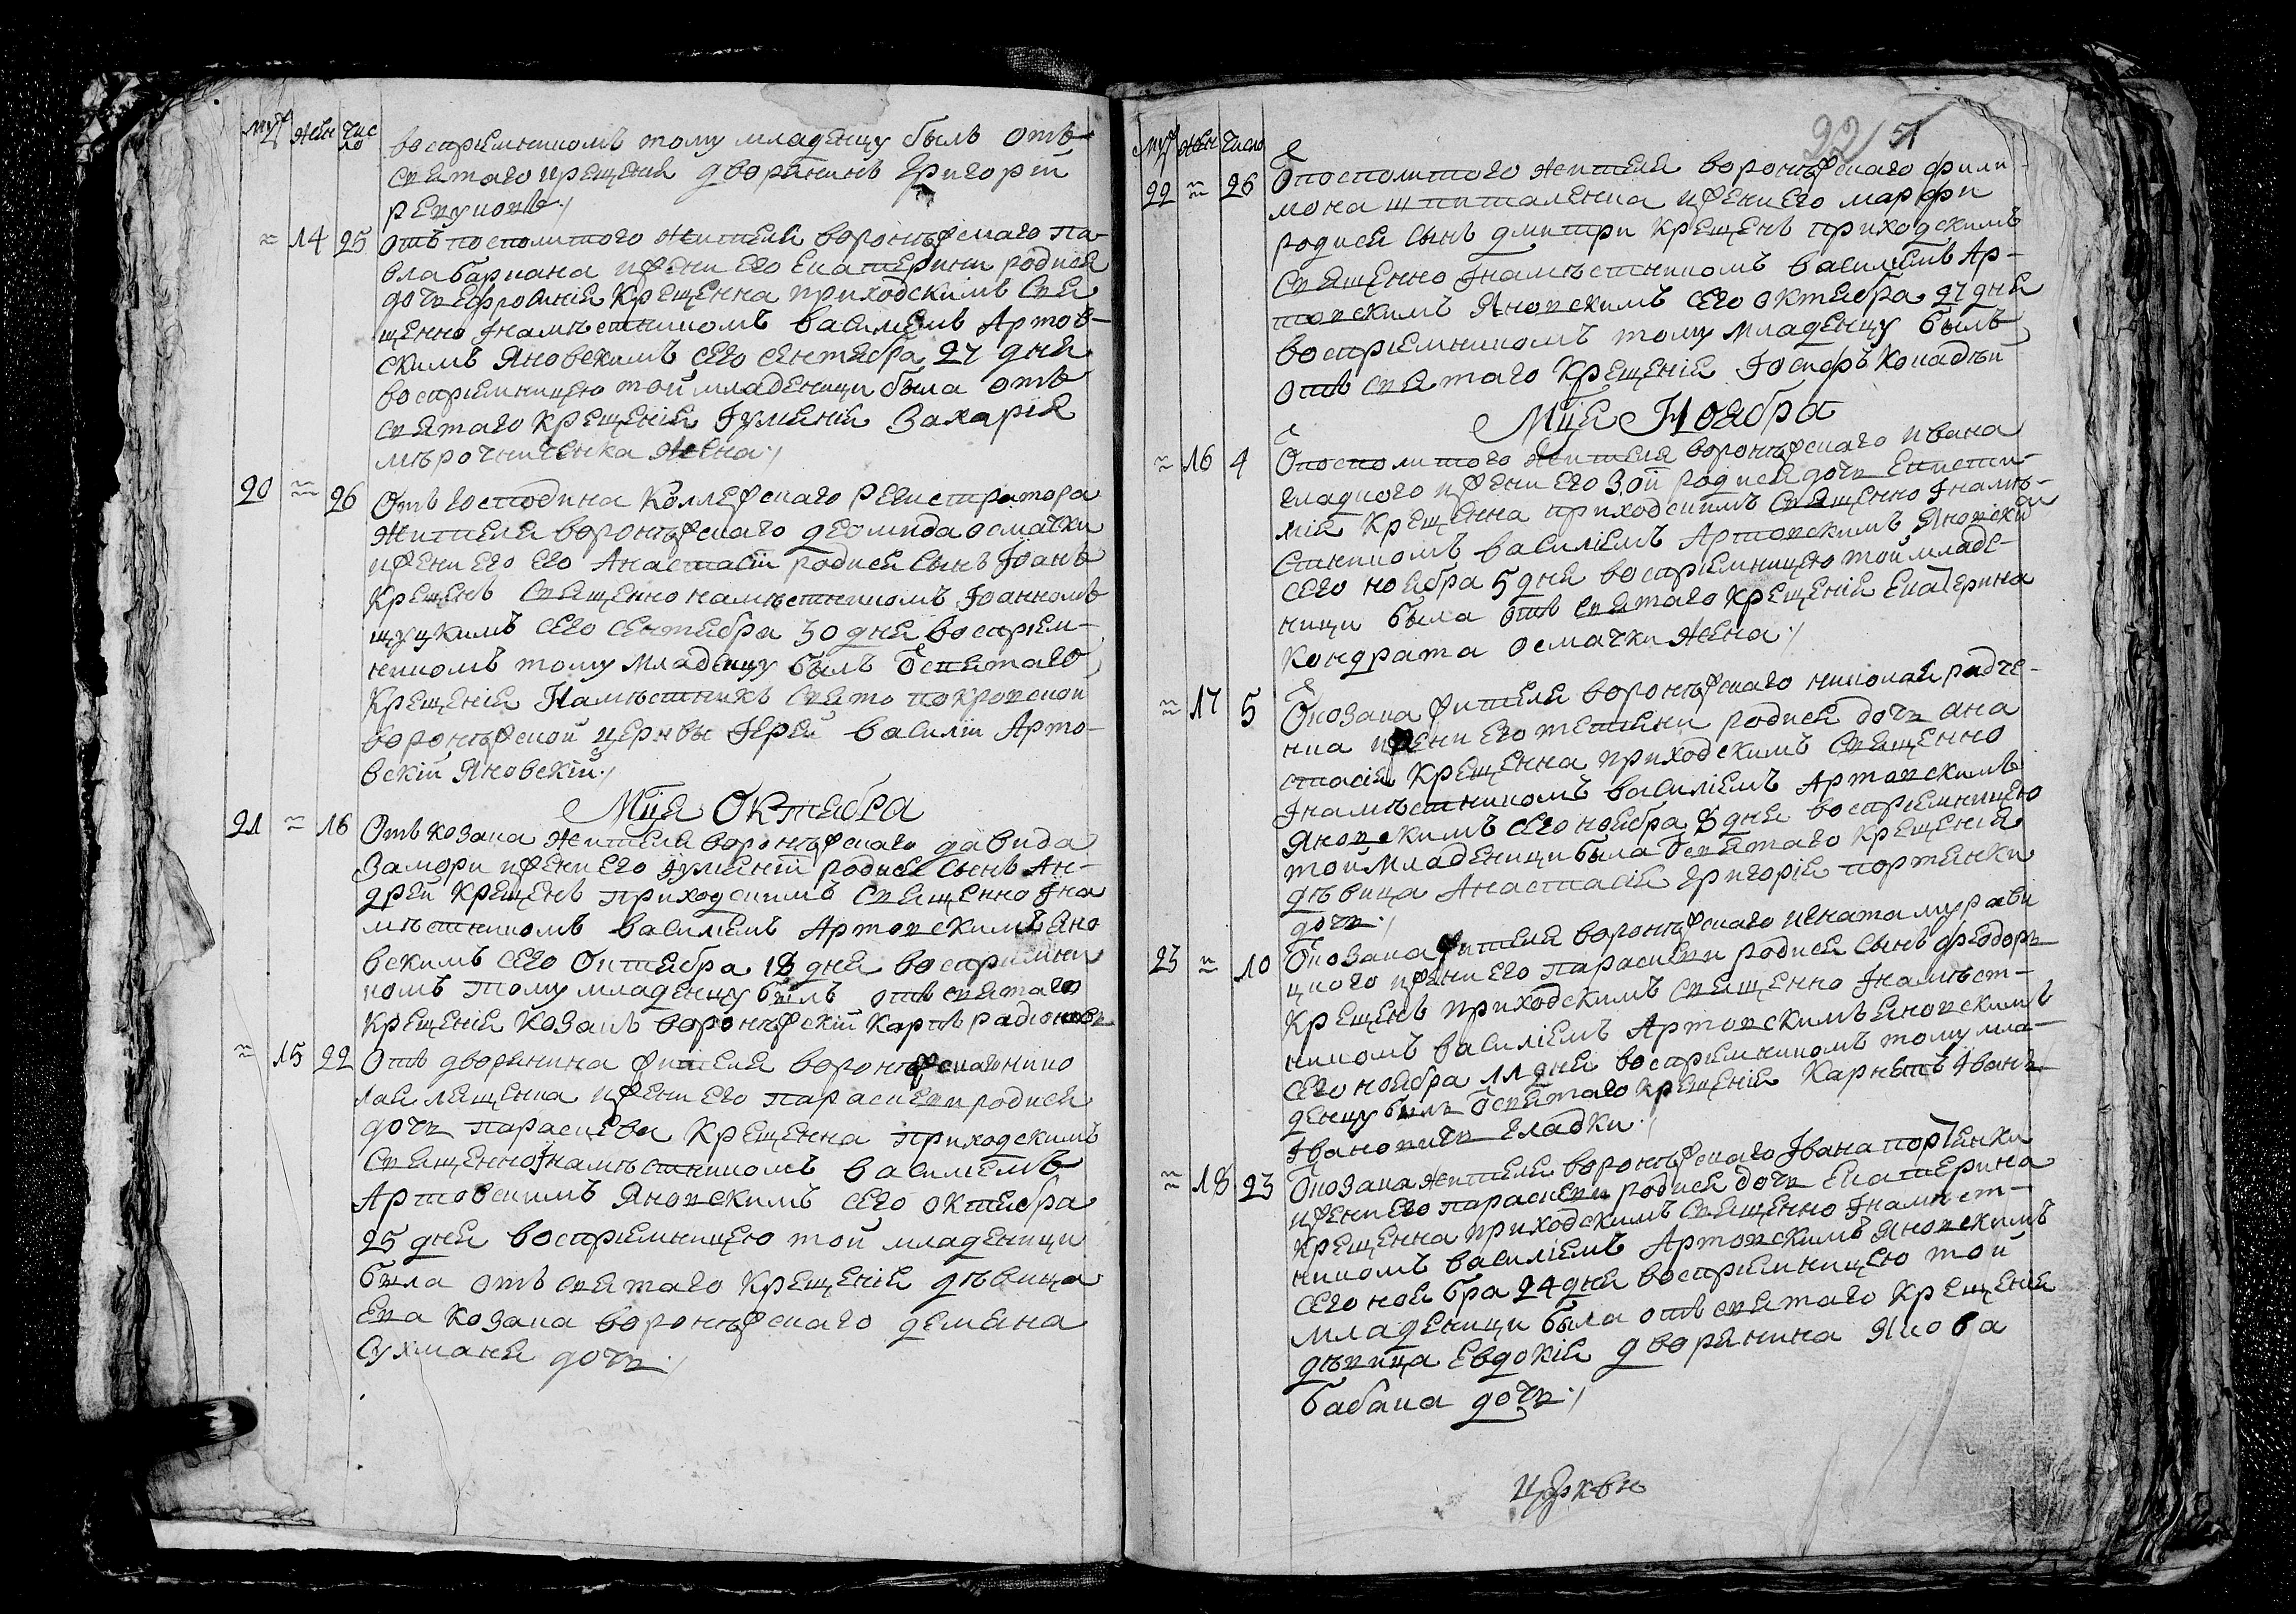 муж жен число
воспріемникомъ тому младенцу былъ отъ
святаго крещенія дворянинъ Григорій
Рекуновъ
≈ 14 25 Отъ посполитого жителя воронѣжскаго па-
вла бариана и жени его Екатерини родися
дочь Ефросинія Крещенна приходскимъ Свя
щенно Iнамѣстникомъ василіемъ Артов-
скимъ Яновскимъ сего сентября 27 дня
воспріемницею той младеници была отъ
святаго Крещенія Iуліанія Захарія
мѣрочниченка жена
20 ≈ 26 Отъ господина Коллежскаго регистратора
жителя воронѣжскаго деомида осмачки
и жени его его Анастасіи родися Сынъ Iоанъ
Крещенъ Священно намѣстникомъ Iоанномъ
щуцкимъ сего сентября 30 дня воспріем-
никомъ тому младенцу былъ ѿ святаго
Крещенія Намѣстникъ Свято покровской
воронѣжской церквы Iерей василіи Арто-
вскій Яновскій
Мца Октября
21 ≈ 16 Отъ козака жителя воронѣжскаго давида
Замори и жени его Iуліяніи родися Сынъ Ан-
дрей Крещенъ приходскимъ Священно Iна
мѣстникомъ василіемъ Артовскимъ Яно
вскимъ сего Октября 18 дня воспріемни
комъ тому младенцу былъ отъ святаго
Крещенія Козакъ воронѣжскій Карпъ радіоновъ
≈ 15 22 Отъ дворянина жителя воронѣжскаго нико
лая лященка и жени его параскеви родися
дочь параскева Крещенна приходскимъ
Священно Iнамѣстникомъ василіемъ
Артовскимъ Яновскимъ сего октября
25 дня воспріемницею той младеници
была отъ святаго Крещенія дѣвица
Ева козака воронѣжскаго демяна
Сухманя дочь
92 51
муж жен число
22 ≈ 26 Ѿ посполитого жителя воронѣжскаго фили-
мона шпиталенка и жени его марфи
родися Сынъ дмитри Крещенъ приходскимъ
Священно Iнамѣстникомъ василіемъ Ар-
товскимъ Яновскимъ сего октября 27 дня
воспріемникомъ тому младенцу былъ
отъ святаго Крещенія Iосифъ Копадѣй
Мца Ноября
≈ 16 4 Ѿ посполитого жителя воронѣжскаго ивана
гладкого и жени его Зой родися дочь Еписти-
мія Крещенна приходскимъ Священно Iнамѣ-
стникомъ василіемъ Артовскимъ Яновски
сего ноября 5 дня воспріемницею той младе-
ници была отъ святаго Крещенія Екатерина
Кондрата осмачки жена
≈ 17 5 Ѿ козака жителя воронѣжскаго николая радче-
нка и жени его тетяни родися дочь ана
стасія Крещенна приходскимъ Священно
Iнамѣстникомъ василіемъ Артовскимъ
Яновскимъ сего ноября 8 дня воспріемницею
той младеници была ѿ святаго Крещенія
дѣвица Анастасія Григорія портянки
дочь
23 ≈ 10 Ѿ козака жителя воронѣжскаго игната мурави
цкого и жени его параскеви родися Сынъ феодоръ
Крещенъ приходскимъ Священно Iнамѣст-
никомъ василіемъ Артовскимъ Яновскимъ
сего ноября 11 дня воспріемникомъ тому мла-
денцу былъ ѿ святаго крещенія Карнетъ Iванъ
Iвановичъ гладки
≈ 18 23 Ѿ козака жителя воронѣжскаго Iвана портянки
и жени его параскеви родися дочь Екатерина
Крещенна приходскимъ Священно Iнамѣст-
никомъ василіемъ Артовскимъ Яновскимъ
сего ноября 24 дня воспріемницею той
младеници была отъ святаго Крещенія
дѣвица Евдокія дворянина Якова
бабака дочь
церквы